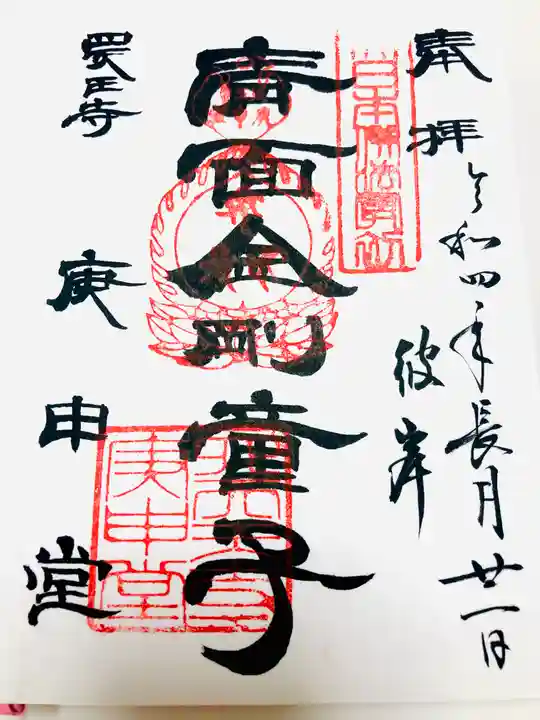 奉拝 令和四年長月廿一日
彼岸
日本佛法最初
青面金剛童子
庚申堂
四天王寺 庚申堂